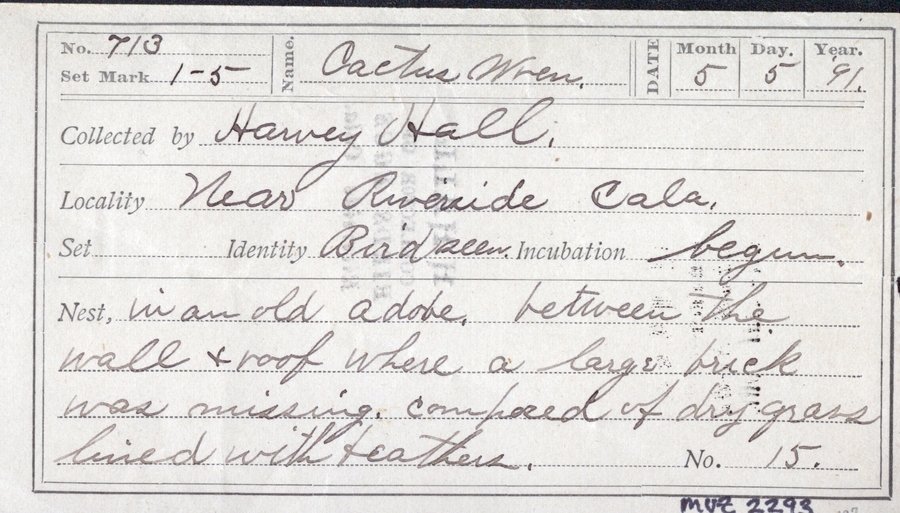 No. 713 Name. Cactus Wren. DATE Month Day. Year.
Set Mark 1-5 5 5 '91.
Collected by Harvey Hall.
Locality Near Riverside Cala.
Set Identity Bird seen. Incubation begun.
Nest, in an old adobe, between the
wall & roof where a large brick
was missing, composed of dry grass
lined with feathers. No. 15.
MVZ 2293